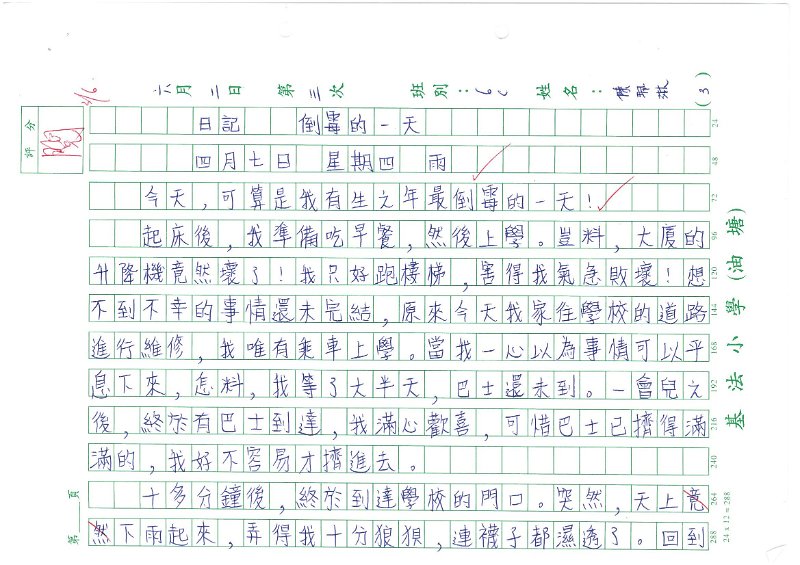 六月二日 第三次 班別：6C 姓名： (3)
評分
日記 倒霉的一天
24
四月七日 星期四 雨
48
今天，可算是我有生之年最倒霉的一天！
72
起床後，我準備吃早餐，然後上學。豈料，大廈的
96
升降機竟然壞了！我只好跑樓梯，害得我氣急敗壞！想
120
不到不幸的事情還未完結，原來今天我家往學校的道路
144
進行維修，我唯有乘車上學。當我一心以為事情可以平
168
息下來，怎料，我等了大半天，巴士還未到。一會兒之
192
後，終於有巴士到達，我滿心歡喜，可惜巴士已擠得滿
216
滿的，我好不容易才擠進去。
240
十多分鐘後，終於到達學校的門口。突然，天上竟
264
然下雨起來，弄得我十分狼狽，連襪子都濕透了。回到
288
第 頁
24 x 12 = 288
基法小學(油塘)